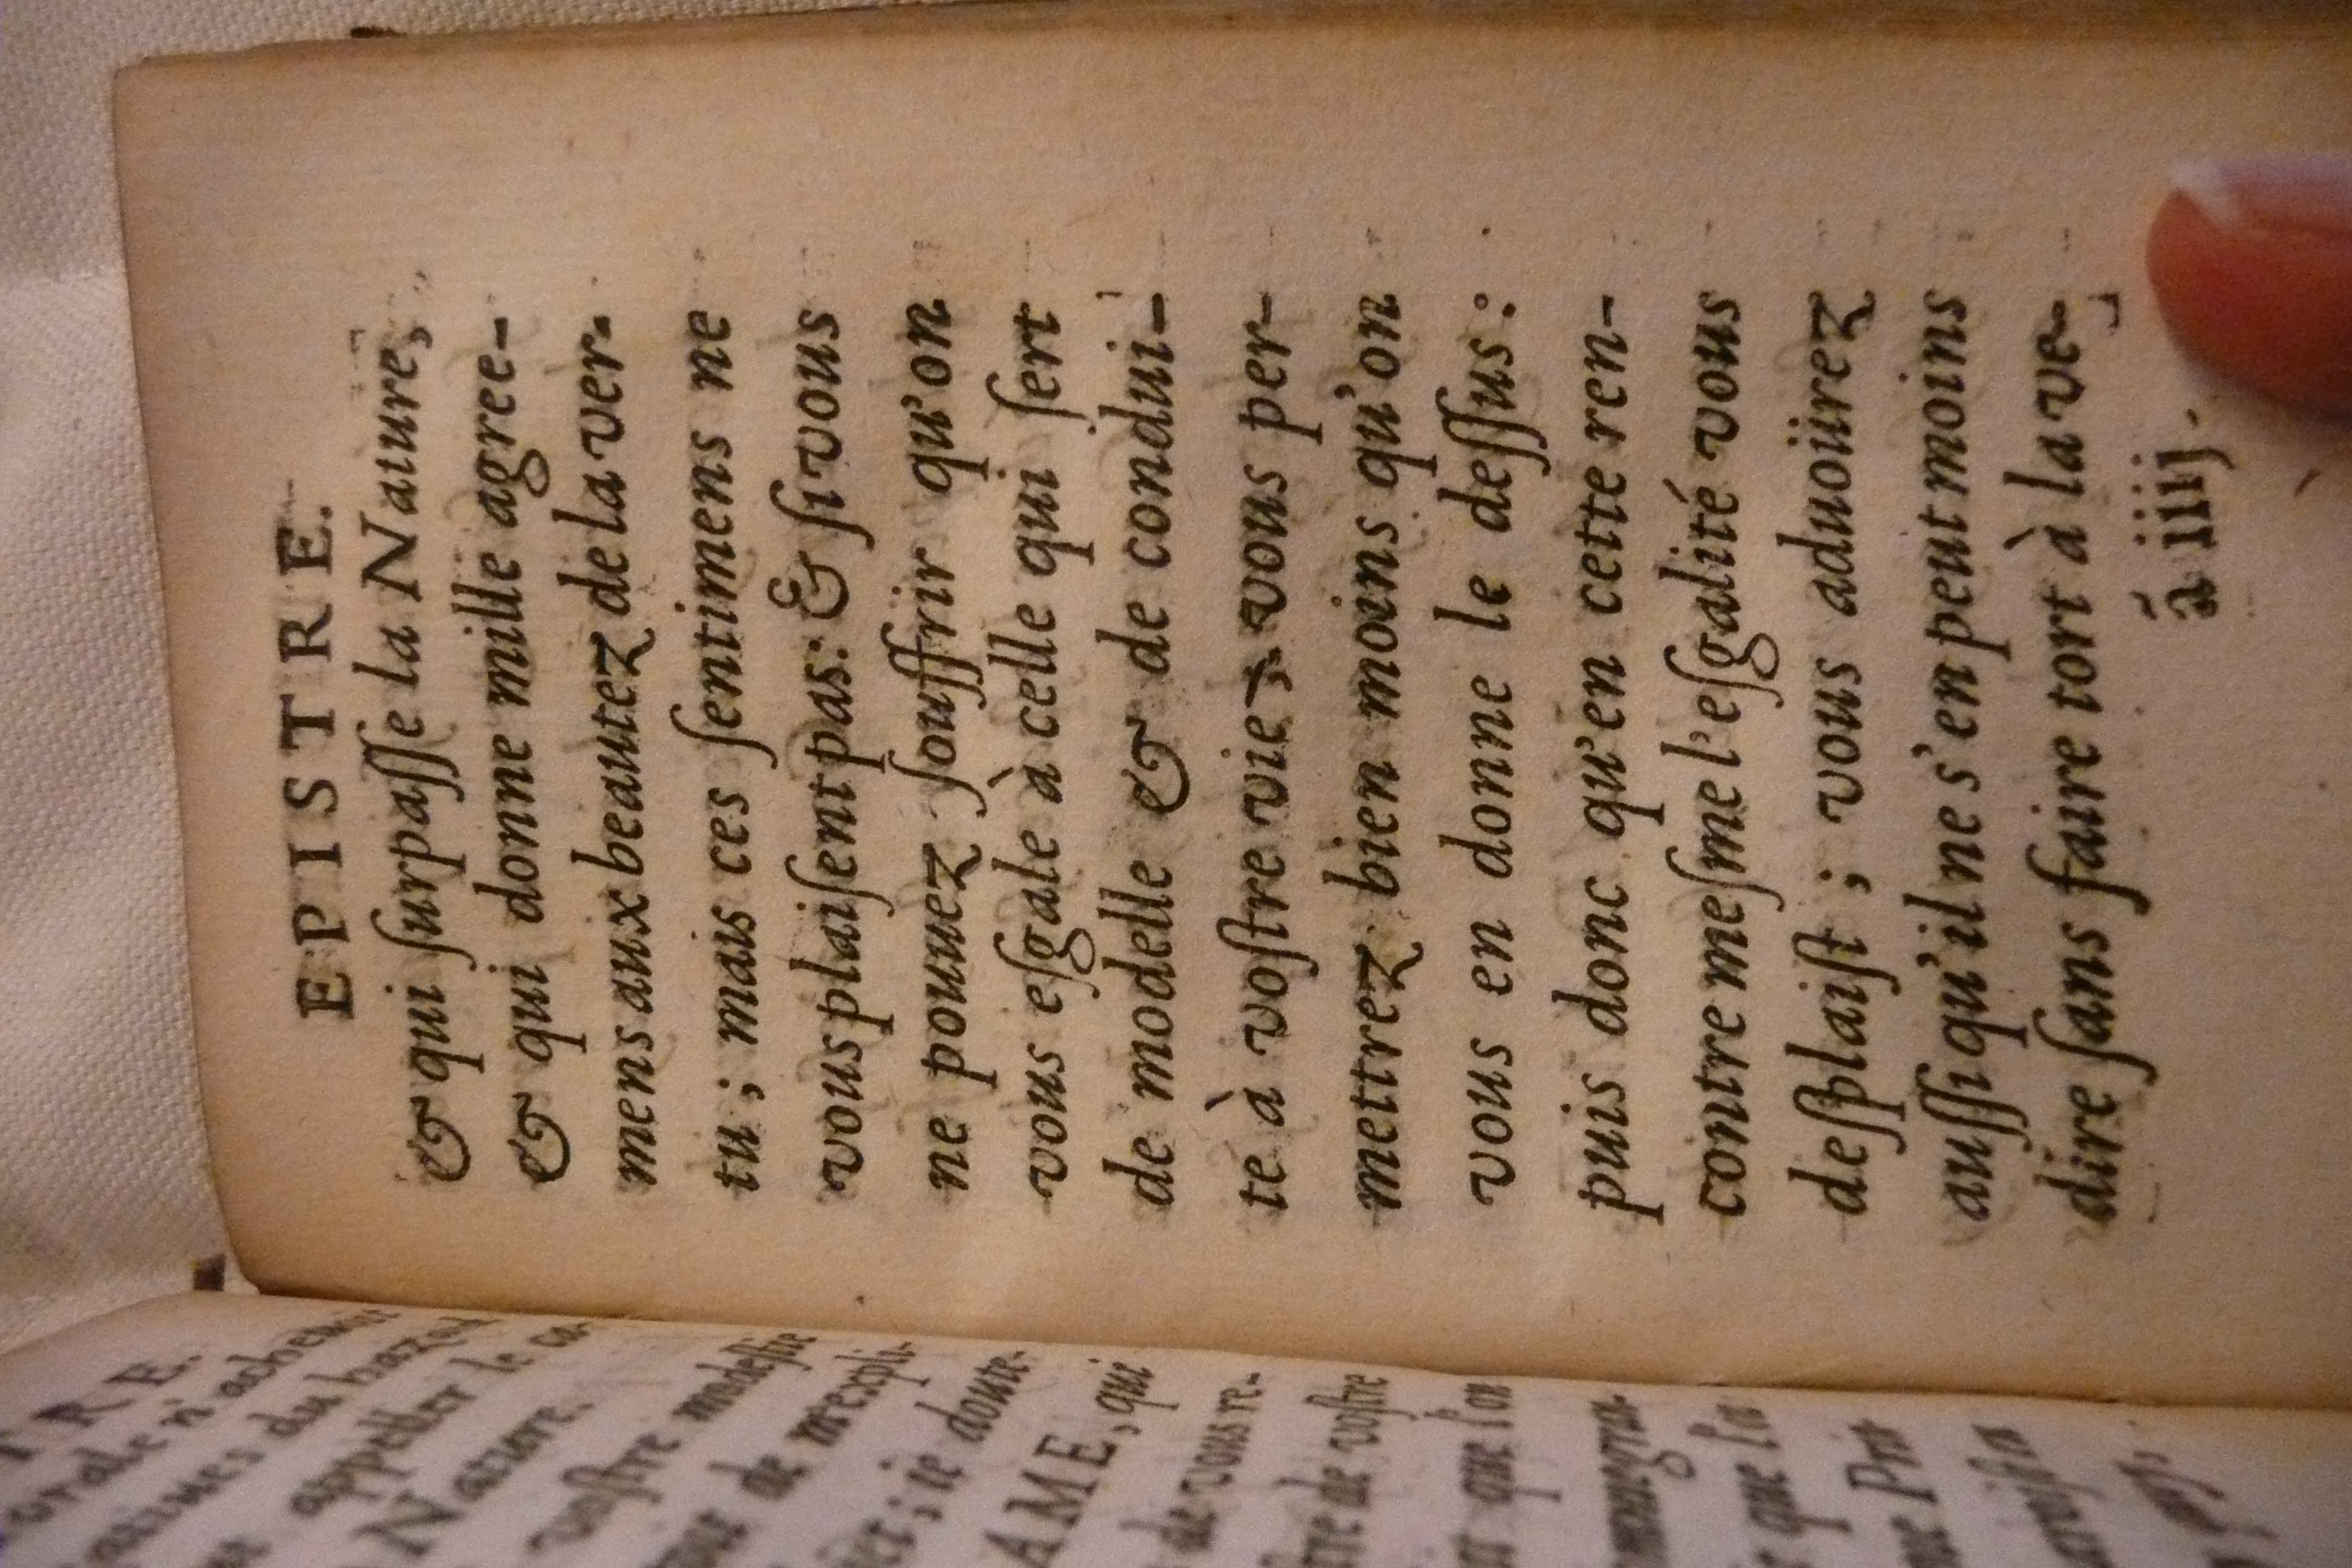 EPISTRE.
& qui ſurpaſſe la Nature,
& qui donne mille agree-
mens aux beautez de la ver-
tu ; mais ces ſentimens ne
vous plaiſent pas : & ſi vous
ne pouuez ſouffrir qu'on
vous eſgale à celle qui ſert
de modelle & de condui-
te à voſtre vie ; vous per-
mettrez bien moins qu'on
vous en donne le deſſus :
puis donc qu'en cette ren-
contre meſme l'eſgalité vous
deſplaiſt ; vous aduoüirez
auſſi qu'il ne s'en peut moins
dire ſans faire tort à la ve-
ã iiij.
voſtre modeſtie
de m'expli-
; ie doute-
AME, qui
de vous re-
de voſtre
que l'on
que l'on